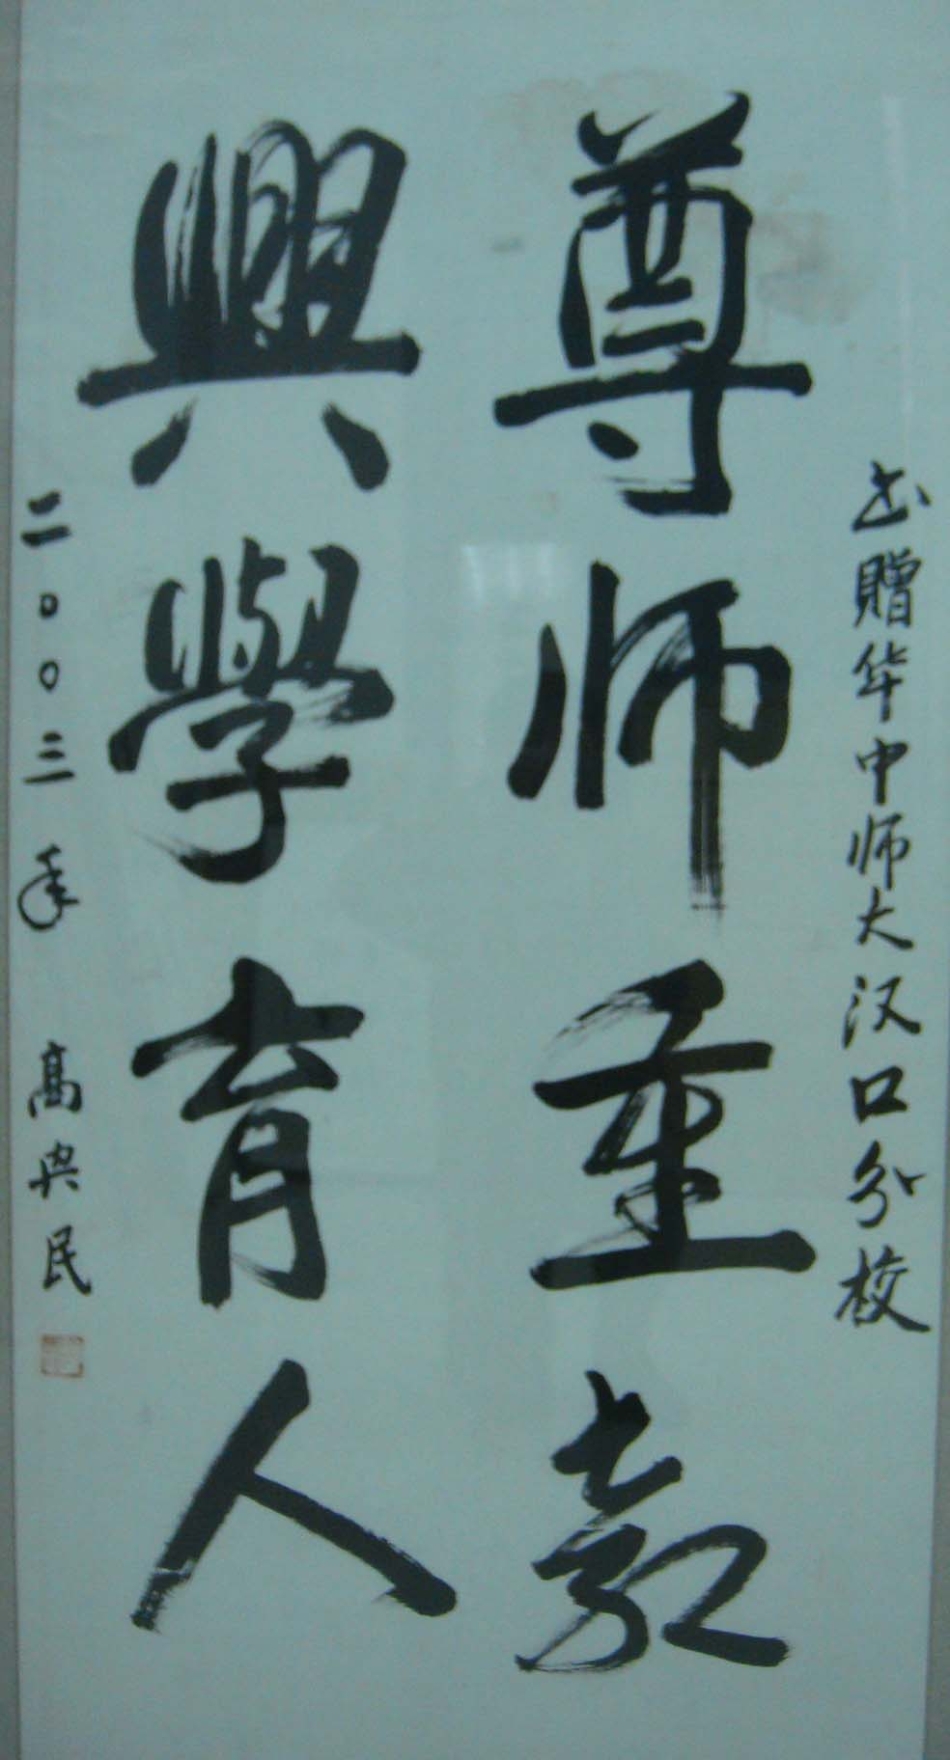 书贈华中师大汉口分校
尊师重教
興學育人
二〇〇三年 高典民